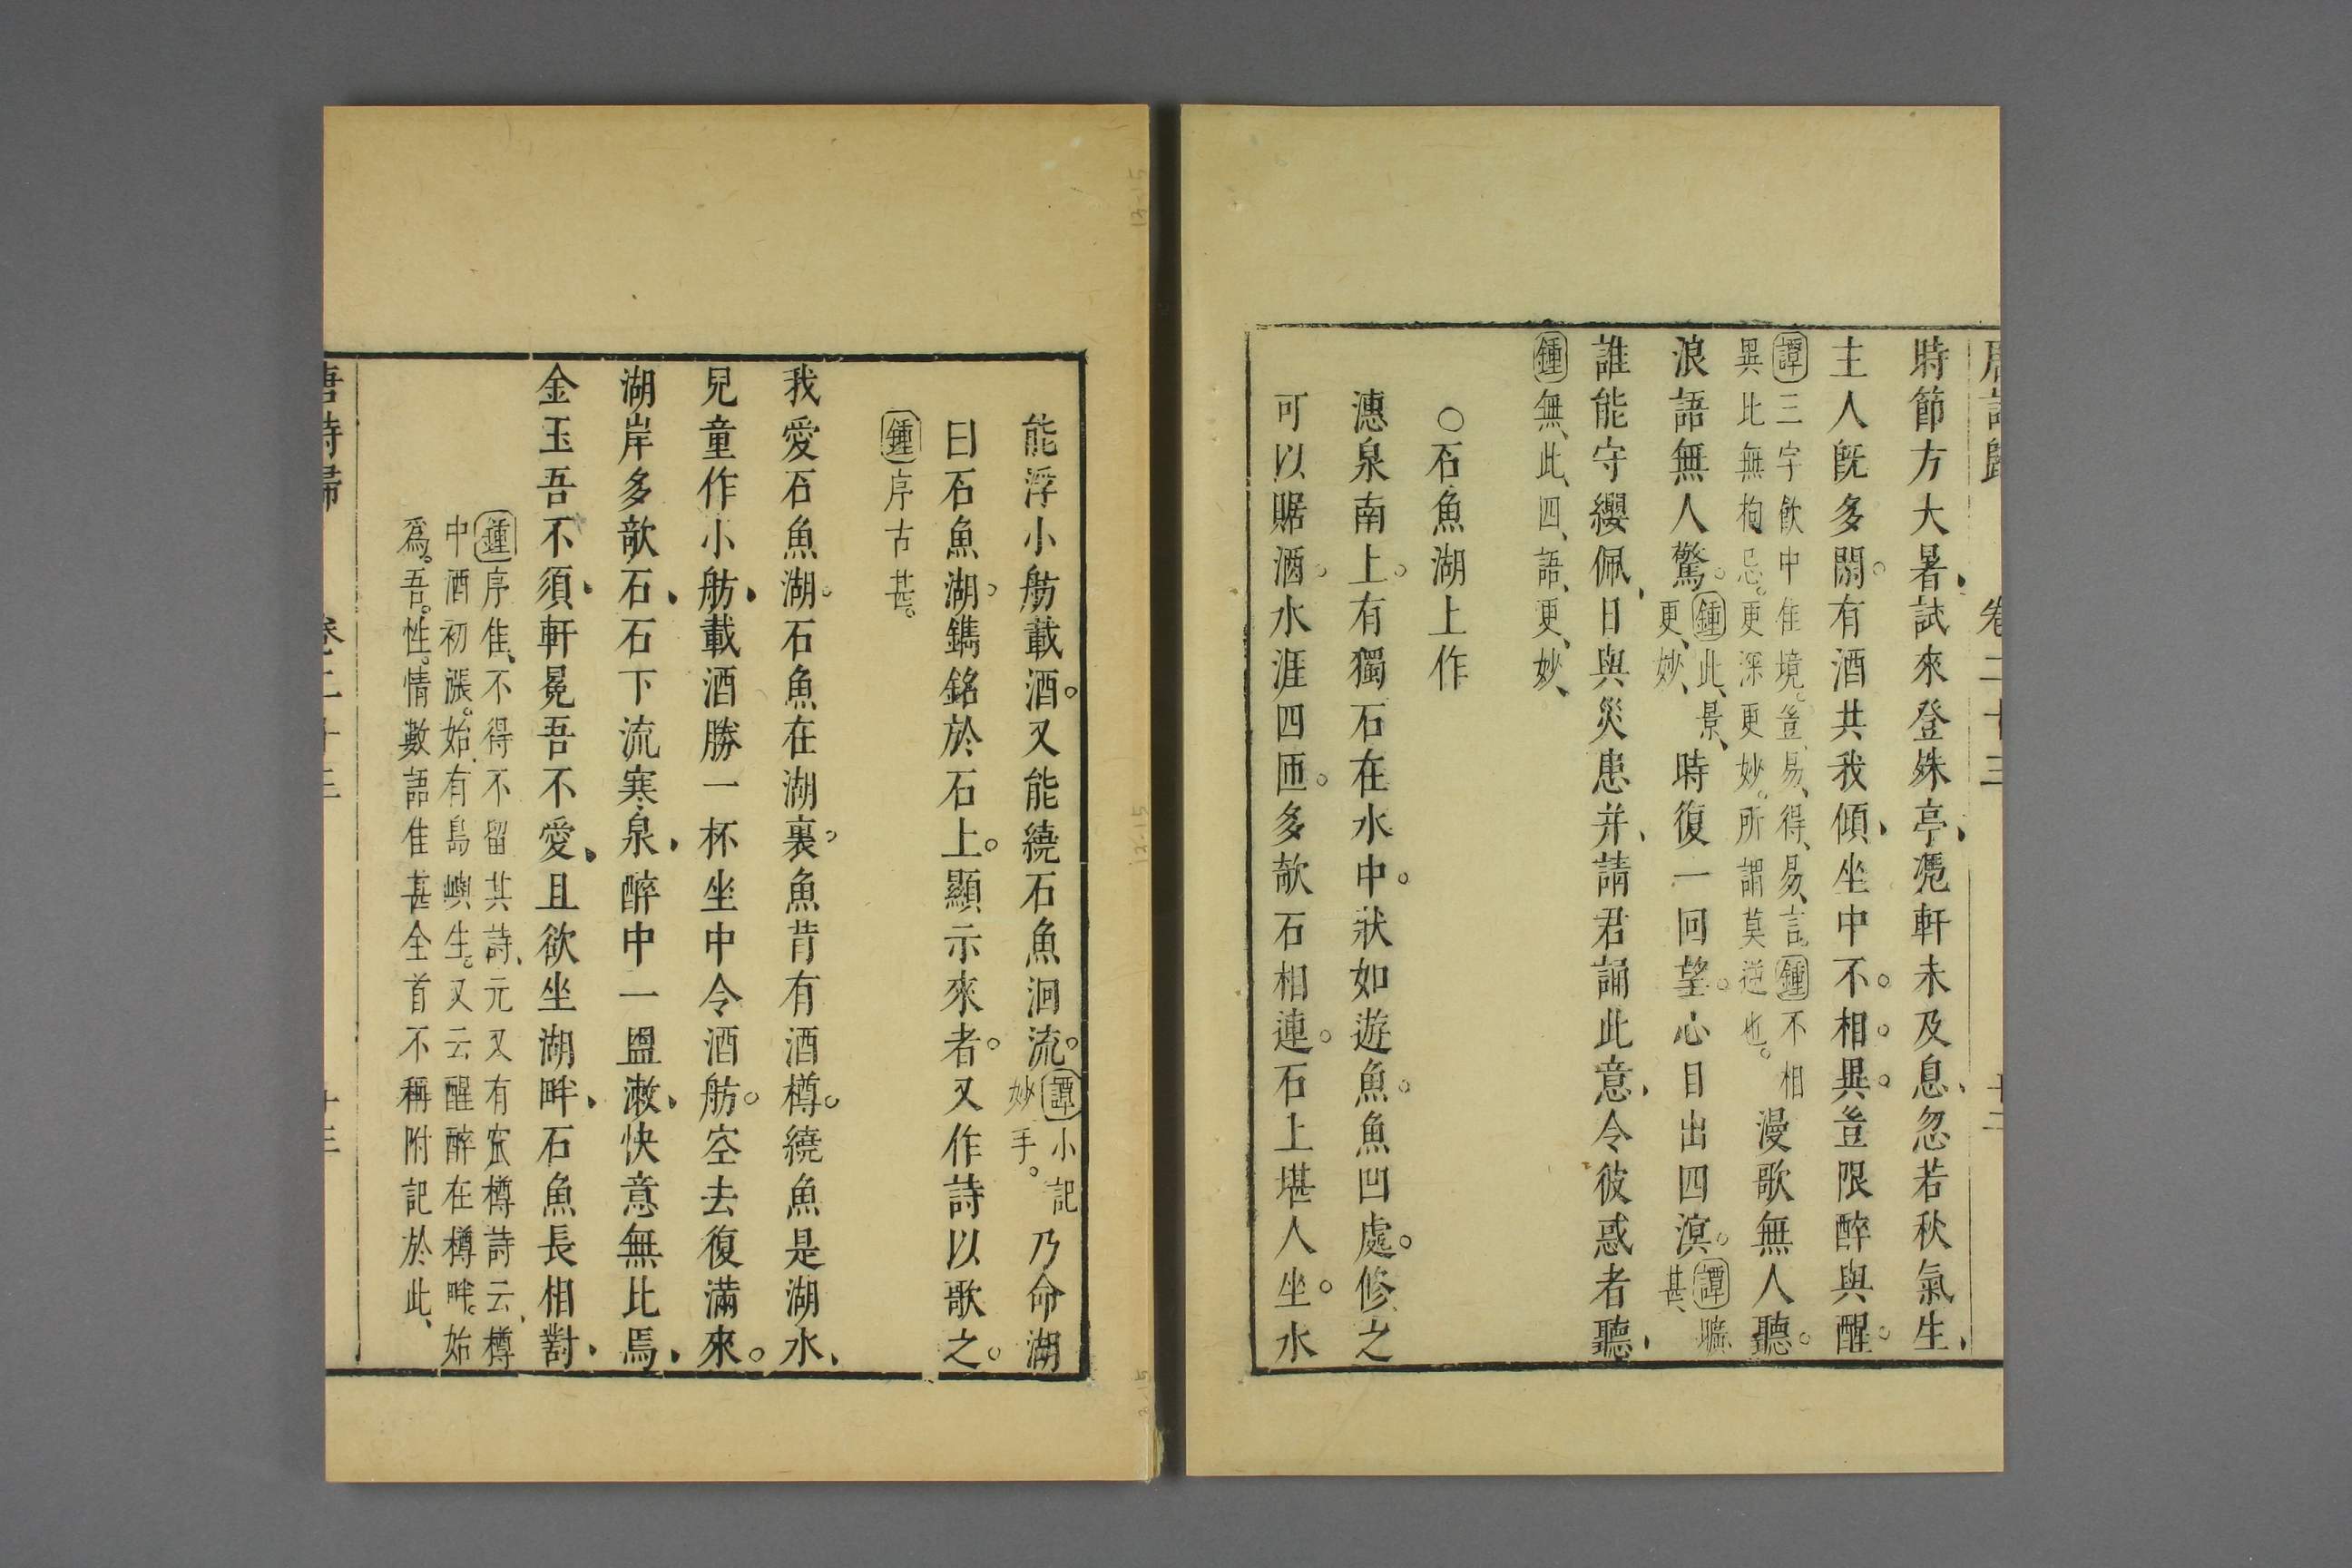 唐詩歸 卷二十三 十二
時節方大暑試來登殊亭憑軒未及息忽若秋氣生
主人旣多閑有酒共我傾坐中不相異豈限醉與醒
譚三字飲中佳境豈易得易言鍾不相
異比無拘忌更深更妙所謂莫逆也
漫歌無人聽
浪語無人驚
鍾此景
更妙
時復一回望心目出四溟
譚曠
甚
誰能守纓佩日與災患并請君誦此意令彼惑者聽
鍾無此四語更妙
○石魚湖上作
漶泉南上有獨石在水中狀如遊魚魚凹處修之
可以貯酒水涯四匝多欹石相連石上堪人坐水
能浮小舫載酒又能繞石魚洄流
譚小記
妙手
乃命湖
曰石魚湖鐫銘於石上顯示來者又作詩以歌之
鍾序古甚
我愛石魚湖石魚在湖裏魚背有酒樽繞魚是湖水
兒童作小舫載酒勝一杯坐中令酒舫空去復滿來
湖岸多欹石石下流寒泉醉中一盥漱快意無比焉
金玉吾不須軒冕吾不愛且欲坐湖畔石魚長相對
鍾序佳不得不留其詩元又有窊樽詩云樽
中酒初漲始有島嶼生又云醒醉在樽畔始
爲吾性情數語佳甚全首不稱附記於此
唐詩歸 卷二十三 十三